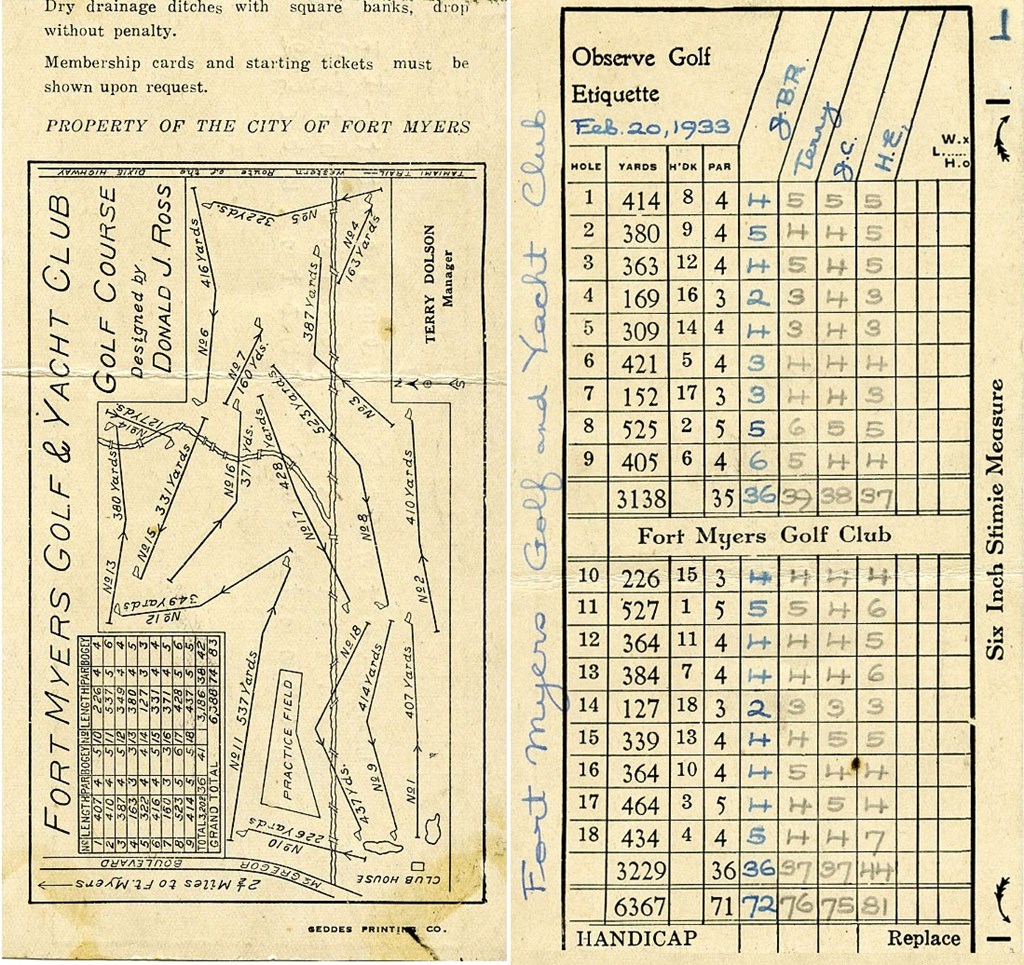 Dry drainage ditches with square banks, drop
without penalty.
Membership cards and starting tickets must be
shown upon request.
PROPERTY OF THE CITY OF FORT MYERS
TAMIAMI TRAIL— Western Route of the DIXIE HIGHWAY
FORT MYERS GOLF & YACHT CLUB
GOLF COURSE
Designed by
DONALD J. ROSS
TERRY DOLSON
Manager
N
S
No 5 322 Yds.
No 4 163 Yards
416 Yards No 6
387 Yards No 3
No 7 160 Yds.
523 Yards No 8
No 14 127 Yds.
380 Yards No 13
No 15 331 Yards
No 16 371 Yds.
428 Yards No 17
410 Yards No 2
No 12 349 Yards
No 11 537 Yards
No 18 437 Yds.
No 9 414 Yards
No 1 407 Yards
No 10 226 Yards
PRACTICE FIELD
No LENGTH PAR BOGEY No LENGTH PAR BOGEY
1 407 4 5 10 226 4 4
2 410 4 5 11 537 5 6
3 387 4 5 12 349 4 4
4 163 3 3 13 380 4 5
5 322 4 4 14 127 3 3
6 416 4 5 15 331 4 4
7 160 3 3 16 371 4 5
8 523 5 6 17 428 5 6
9 414 5 5 18 437 5 5
TOTAL 3,202 36 41 3,186 38 42
GRAND TOTAL 6,388 74 83
McGREGOR BOULEVARD
2½ Miles to Ft. Myers
CLUB HOUSE
GEDDES PRINTING CO.
Fort Myers Golf and Yacht Club
Observe Golf
Etiquette
Feb. 20, 1933
J.B.R. Terry J.C. H.E.
W.x
L......
H.o
HOLE YARDS H'DK PAR
1 414 8 4 4 5 5 5
2 380 9 4 5 4 4 5
3 363 12 4 4 5 4 5
4 169 16 3 2 3 4 3
5 309 14 4 4 3 4 3
6 421 5 4 3 4 4 4
7 152 17 3 3 4 4 3
8 525 2 5 5 6 5 5
9 405 6 4 6 5 4 4
3138 35 36 39 38 37
Fort Myers Golf Club
10 226 15 3 4 4 4 4
11 527 1 5 5 5 4 6
12 364 11 4 4 4 4 5
13 384 7 4 4 4 4 6
14 127 18 3 2 3 3 3
15 339 13 4 4 4 5 5
16 364 10 4 4 5 4 4
17 464 3 5 4 4 5 4
18 434 4 4 5 4 4 7
3229 36 36 37 37 44
6367 71 72 76 75 81
HANDICAP Replace
1
Six Inch Stimie Measure